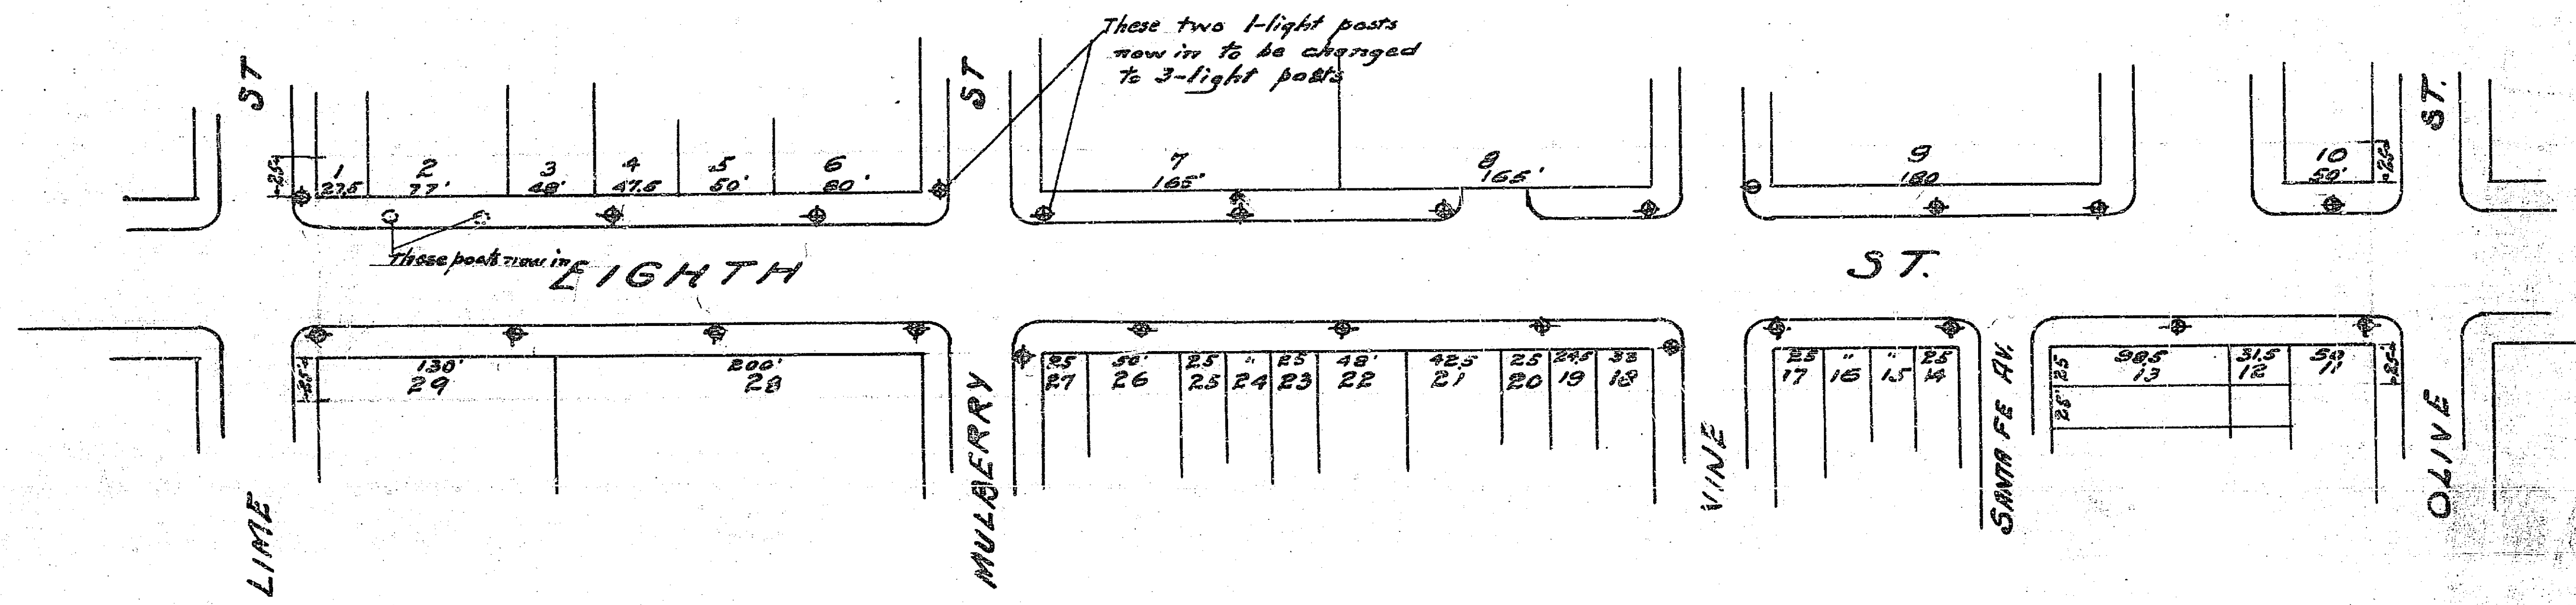 These two 1-light posts
now in to be changed
to 3-light posts
ST
ST
ST.
25
1
27.5
2
77'
3
48'
4
47.5
5
50'
6
80'
7
165'
8
165'
9
180
10
50'
25
These posts now in
EIGHTH
ST.
25
130'
29
200'
28
25
27
50'
26
25
25
"
24
25
23
48'
22
42.5
21
25
20
24.5
19
33
18
25
17
"
16
"
15
25
14
25
25
98.5
13
31.5
12
50
11
25
LIME
MULBERRY
VINE
SANTA FE AV.
OLIVE